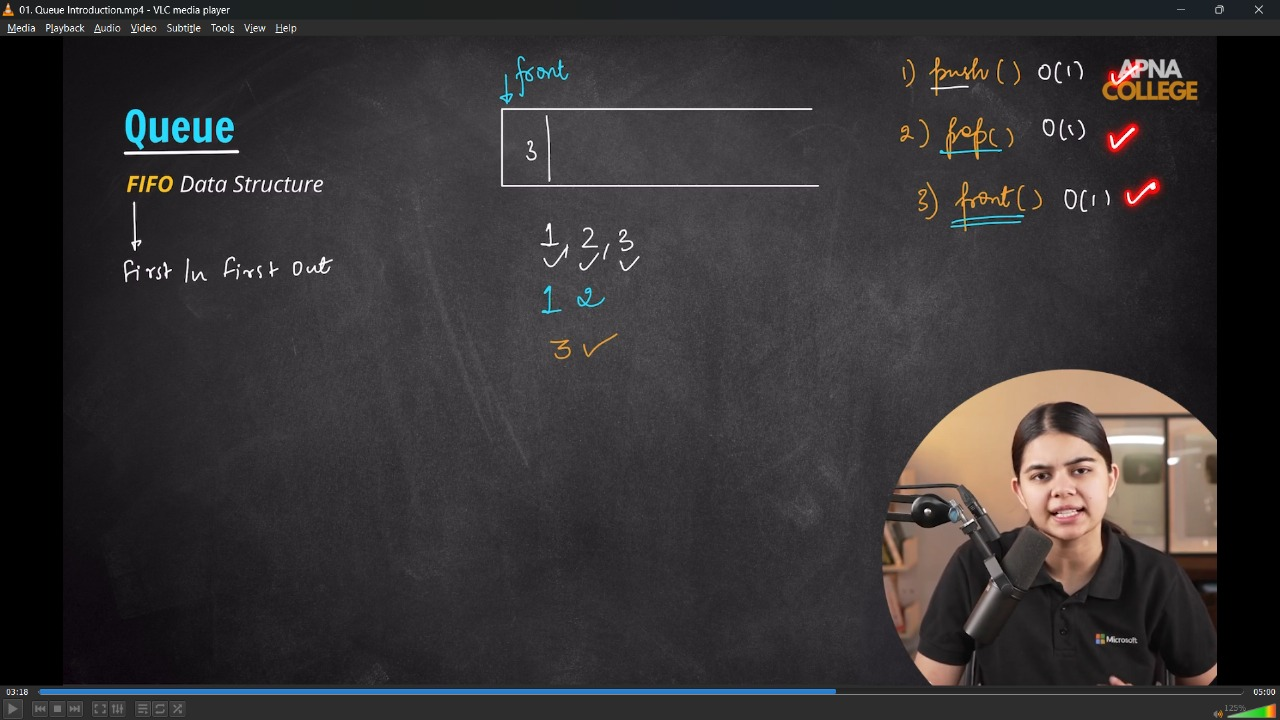 01. Queue Introduction.mp4 - VLC media player
Media Playback Audio Video Subtitle Tools View Help
front
3
1, 2, 3
1 2
3
Queue
FIFO Data Structure
First In First Out
1) push() O(1)
2) pop() O(1)
3) front() O(1)
APNA
COLLEGE
Microsoft
03:18
05:00
125%